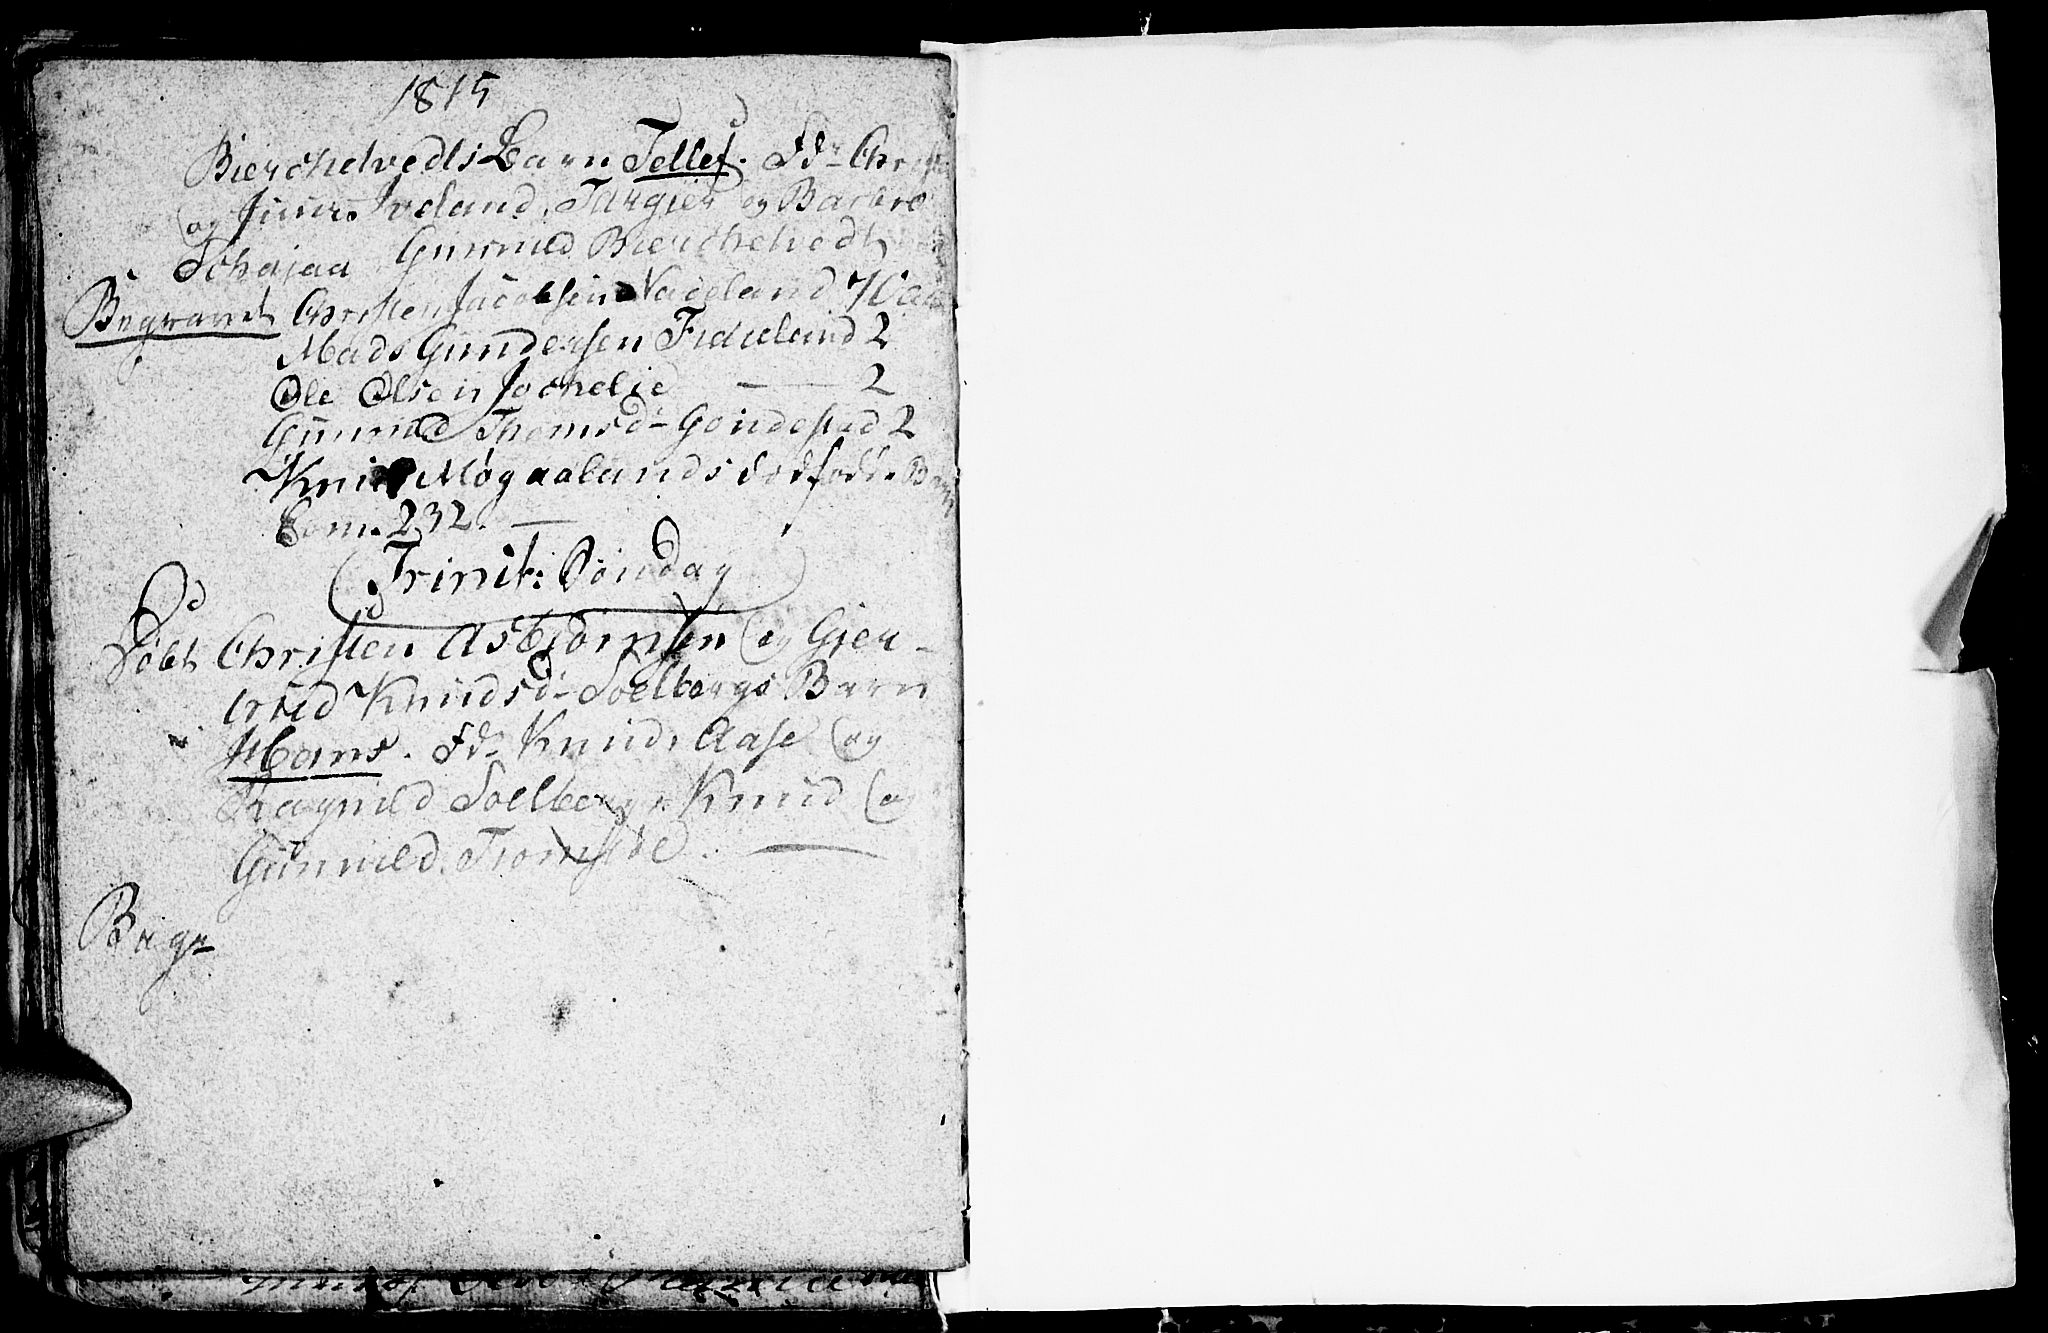 1815
Bierchelvedts Barn Tellef. Fdr Chr
og Iveland, Targier og Barbro
Gunnild Bierchelvedt
Begravet Christen Jacobsen Vadeland 70 a
Mads Gundersen Fidieland 2
Ole Olsen Jochelie — 2
Gunnild Thomsd- Gondestad 2
Knud Møgaalands dødfødte Barn
Com. 232. —
Trinit: Søndag
Døbt Christen Asbiørnsen og Gier-
trud Knudsd- Soelbergs Barn
Hans. Fd- Knud, Aase og
Ragnild Soelberg, Knud og
Gunnild Tromsøe. —
Begr